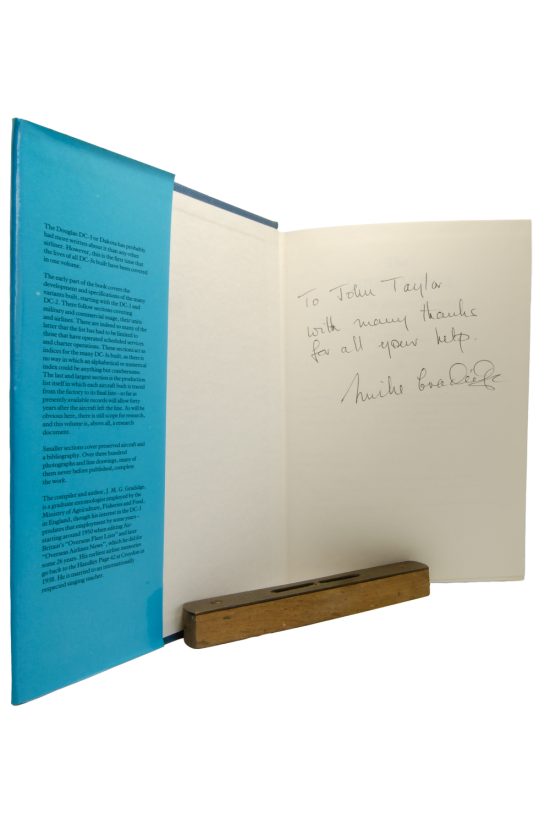 The Douglas DC-3 or Dakota has probably
had more written about it than any other
airliner. However, this is the first time that
the lives of all DC-3s built have been covered
in one volume.
The early part of the book covers the
development and specifications of the many
variants built, starting with the DC-1 and
DC-2. There follow sections covering
military and commercial usage, their units
and airlines. There are indeed so many of the
latter that the list has had to be limited to
those that have operated scheduled services
and charter operations. These sections act as
indices for the many DC-3s built, as there is
no way in which an alphabetical or numerical
index could be anything but cumbersome.
The last and largest section is the production
list itself in which each aircraft built is traced
from the factory to its final fate—so far as
presently available records will allow forty
years after the aircraft left the line. As will be
obvious here, there is still scope for research,
and this volume is, above all, a research
document.
Smaller sections cover preserved aircraft and
a bibliography. Over three hundred
photographs and line drawings, many of
them never before published, complete
the work.
The compiler and author, J. M. G. Gradidge,
is a graduate entomologist employed by the
Ministry of Agriculture, Fisheries and Food,
in England, though his interest in the DC-3
predates that employment by some years—
starting around 1950 when editing Air-
Britain's "Overseas Fleet Lists" and later
"Overseas Airlines News", which he did for
some 26 years. His earliest airline memories
go back to the Handley Page 42 at Croydon in
1938. He is married to an internationally
respected singing teacher.
To John Taylor
with many thanks
for all your help.
Mike Gradidge